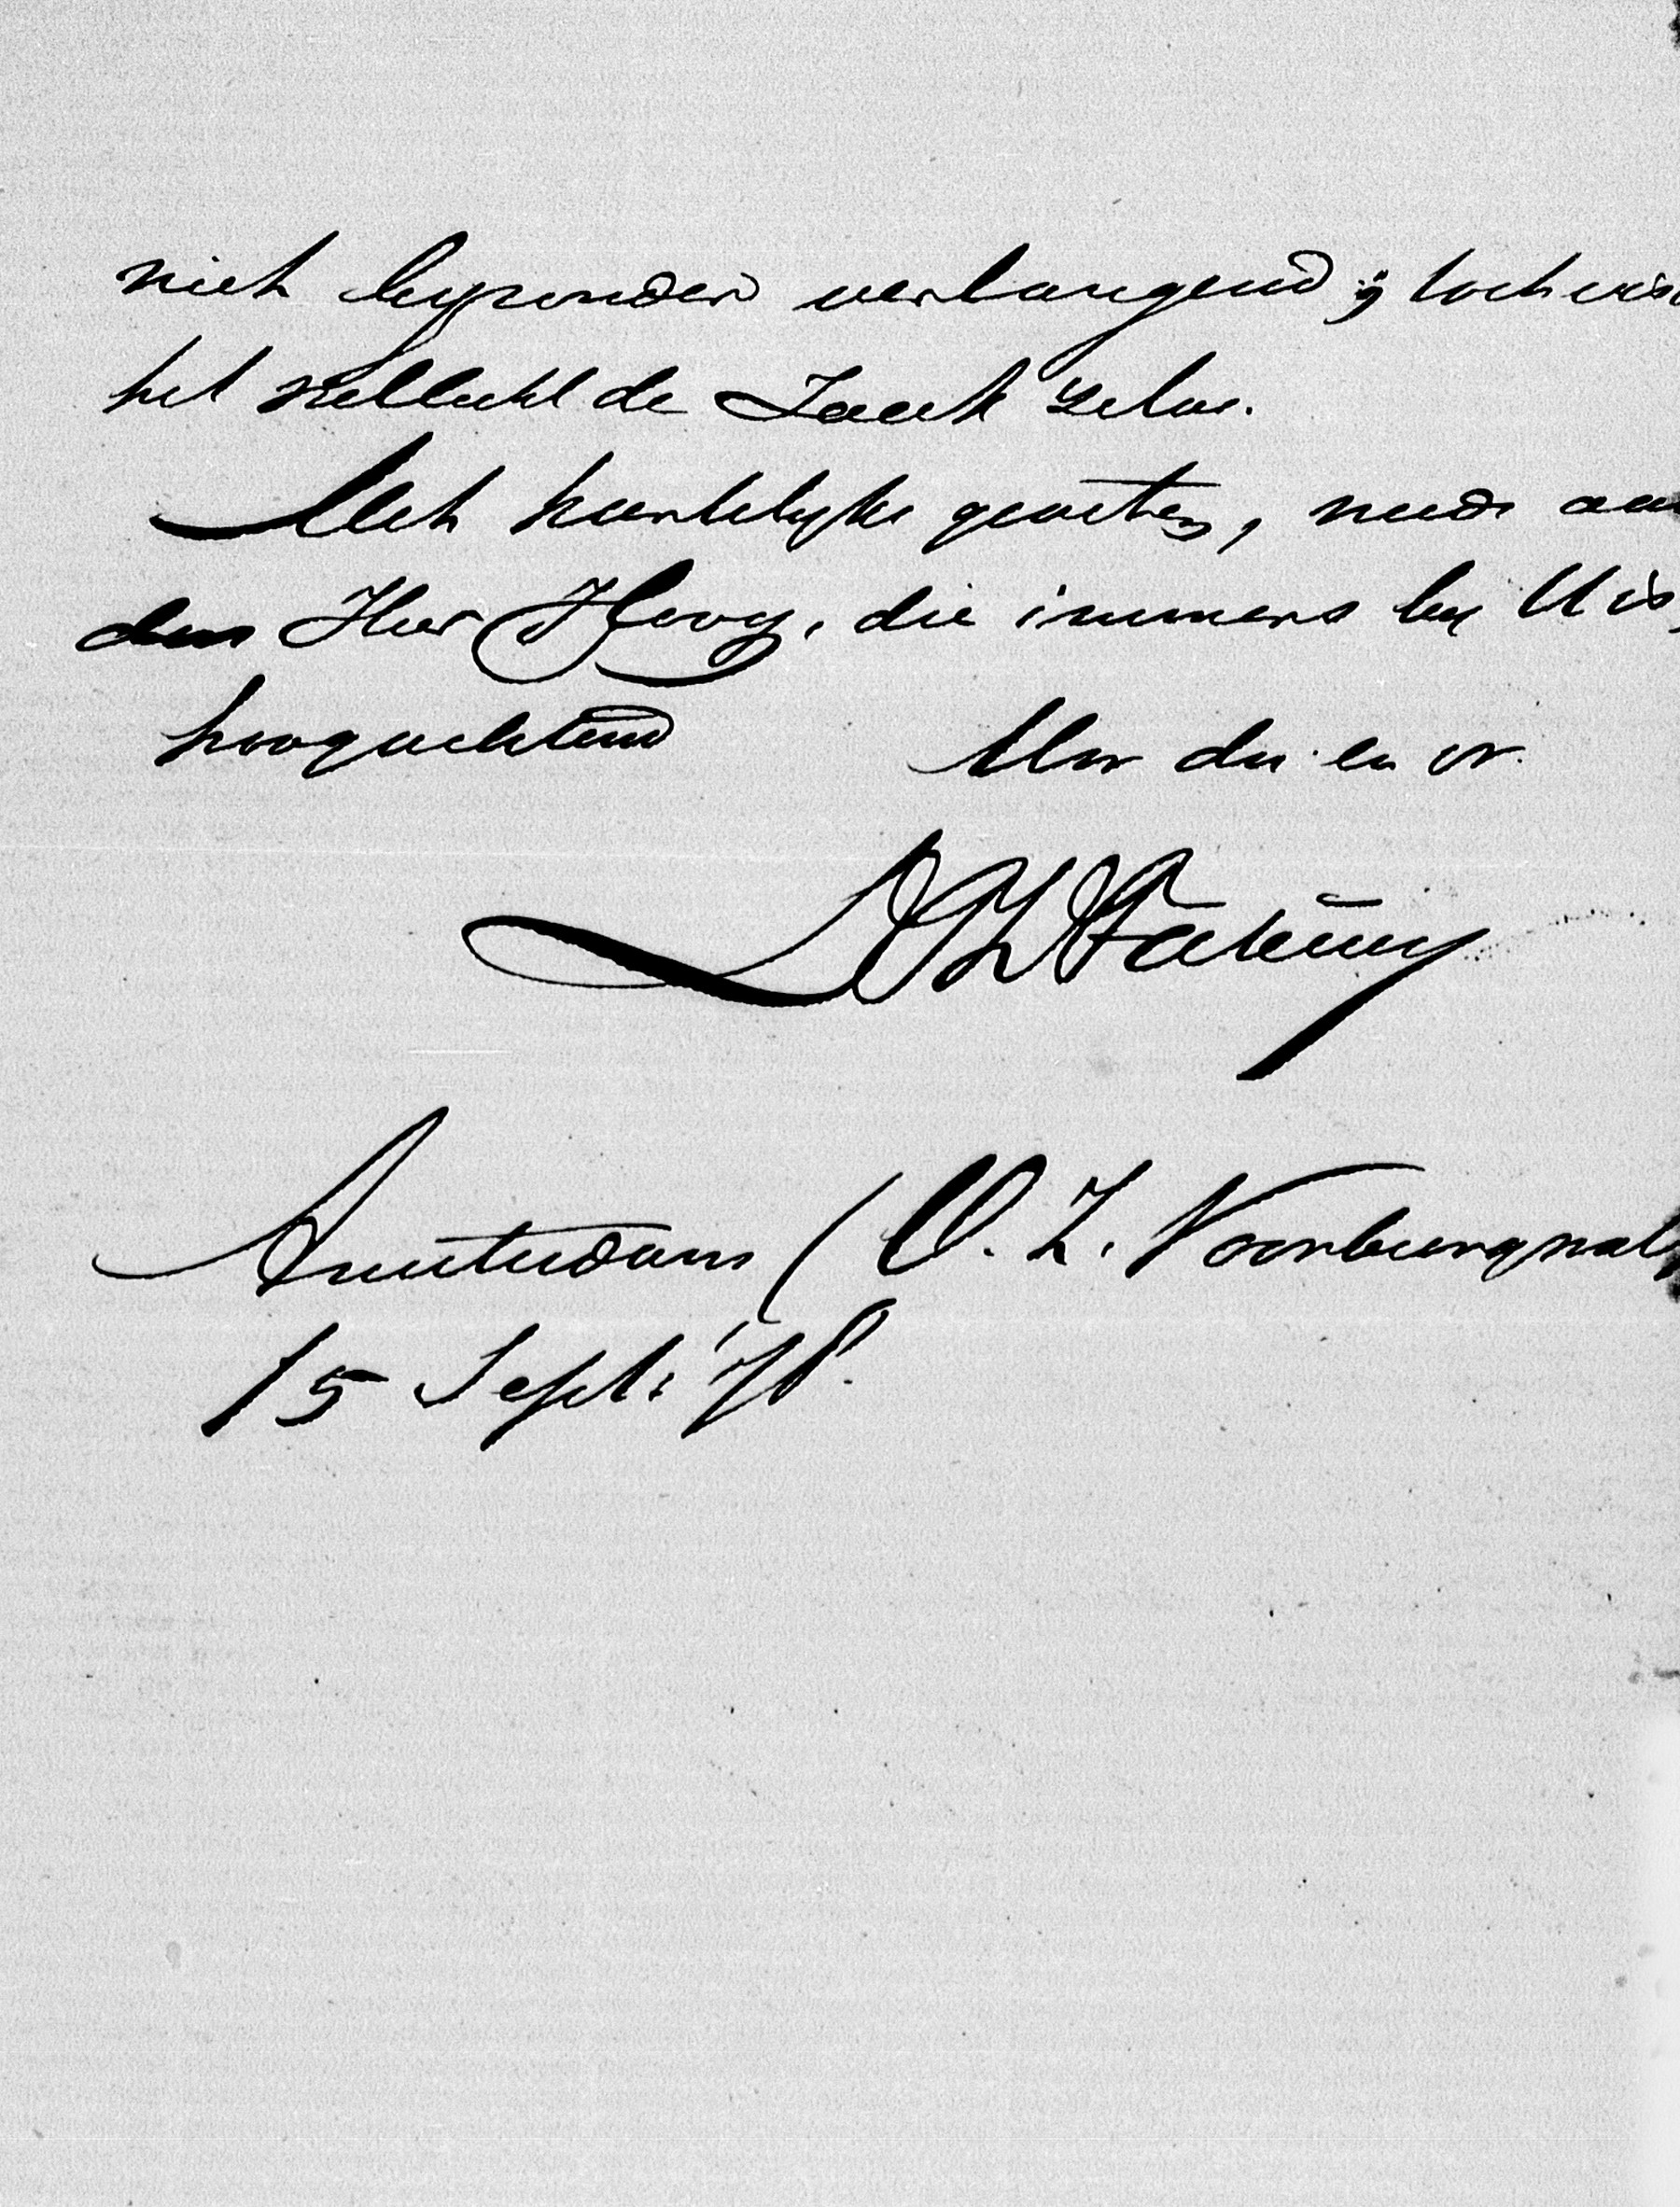 niet byzonder verlangend; toch
het wellicht de zaak zelve.
Met hartelyke groeten, mede aan
den Heer Hovy, die immers by U is,
hoogachtend Uw dn en vr.
Amsterdam (O. Z. Voorburgwal
15 Sept. '78.